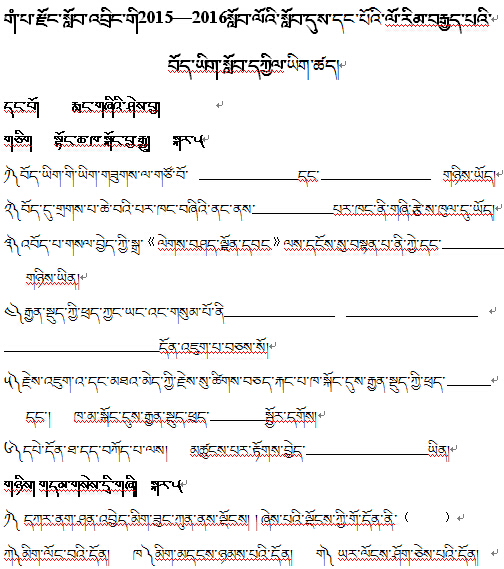 གཾ་པ་རྫོང་སློབ་འབྲིང་གི2015—2016སློབ་ལོའི་སློབ་དུས་དང་པོའི་ལོ་རིམ་བརྒྱད་པའི་
བོད་ཡིག་སློབ་དཀྱིལ་ཡིག་ཚད།
དང་པོ། རྨང་གཞིའི་ཤེས་བྱ།
གཅིག སྟོང་ཆ་ཁ་སྐོང་བྱ་རྒྱུ། སྐར་༥
༡༽བོད་ཡིག་གི་ཡིག་གཟུགས་ལ་གཙོ་བོ་ ____________ དང་ ____________ གཉིས་ཡོད།
༢༽བོད་དུ་གྲགས་པ་ཆེ་བའི་པར་ཁང་བཞིའི་ནང་ནས་__________པར་ཁང་ནི་གཞི་རྩེས་ཁུལ་དུ་ཡོད།
༣༽འབོད་པ་གསལ་བྱེད་ཀྱི་སྒྲ་《ལེགས་བཤད་ལྗོན་དབང་》ལས་དངོས་སུ་བསྟན་པ་ནི་ཀྱེ་དང་________
གཉིས་ཡིན།
༤༽རྒྱན་སྡུད་ཀྱི་ཕྲད་ཀྱང་ཡང་འང་གསུམ་པོ་ནི____________ ____________
________________དོན་འཇུག་པ་བཅས་སོ།
༥༽རྗེས་འཇུག་འ་དང་མཐའ་མེད་ཀྱི་རྗེས་སུ་ཚིགས་བཅད་རྐང་པ་ཁ་སྐོང་དུས་རྒྱན་སྡུད་ཀྱི་ཕྲད་______
དང་། ཁ་མ་སྐོང་དུས་རྒྱན་སྡུད་ཕྲད་________སྦྱོར་དགོས།
༦༽དཔེ་དོན་ཐ་དད་བཀོད་པ་ལས། མཚུངས་པར་རྟོགས་བྱེད་____________ཡིན།
གཉིས། གདམ་གསེས་དྲི་གཞི། སྐར་༥
༡༽ དཀར་ནག་ཤན་འབྱེད་མིག་ཟུང་ཀུན་ནས་ལྡོངས། །ཞེས་པའི་ལྡོངས་ཀྱི་གོ་དོན་ནི་（ ）
ཀ༽མིག་ལོང་བའི་དོན། ཁ༽མིག་མདངས་ཉམས་པའི་དོན། ག༽ ཡར་ལོངས་ཤོག་ཅེས་པའི་དོན།